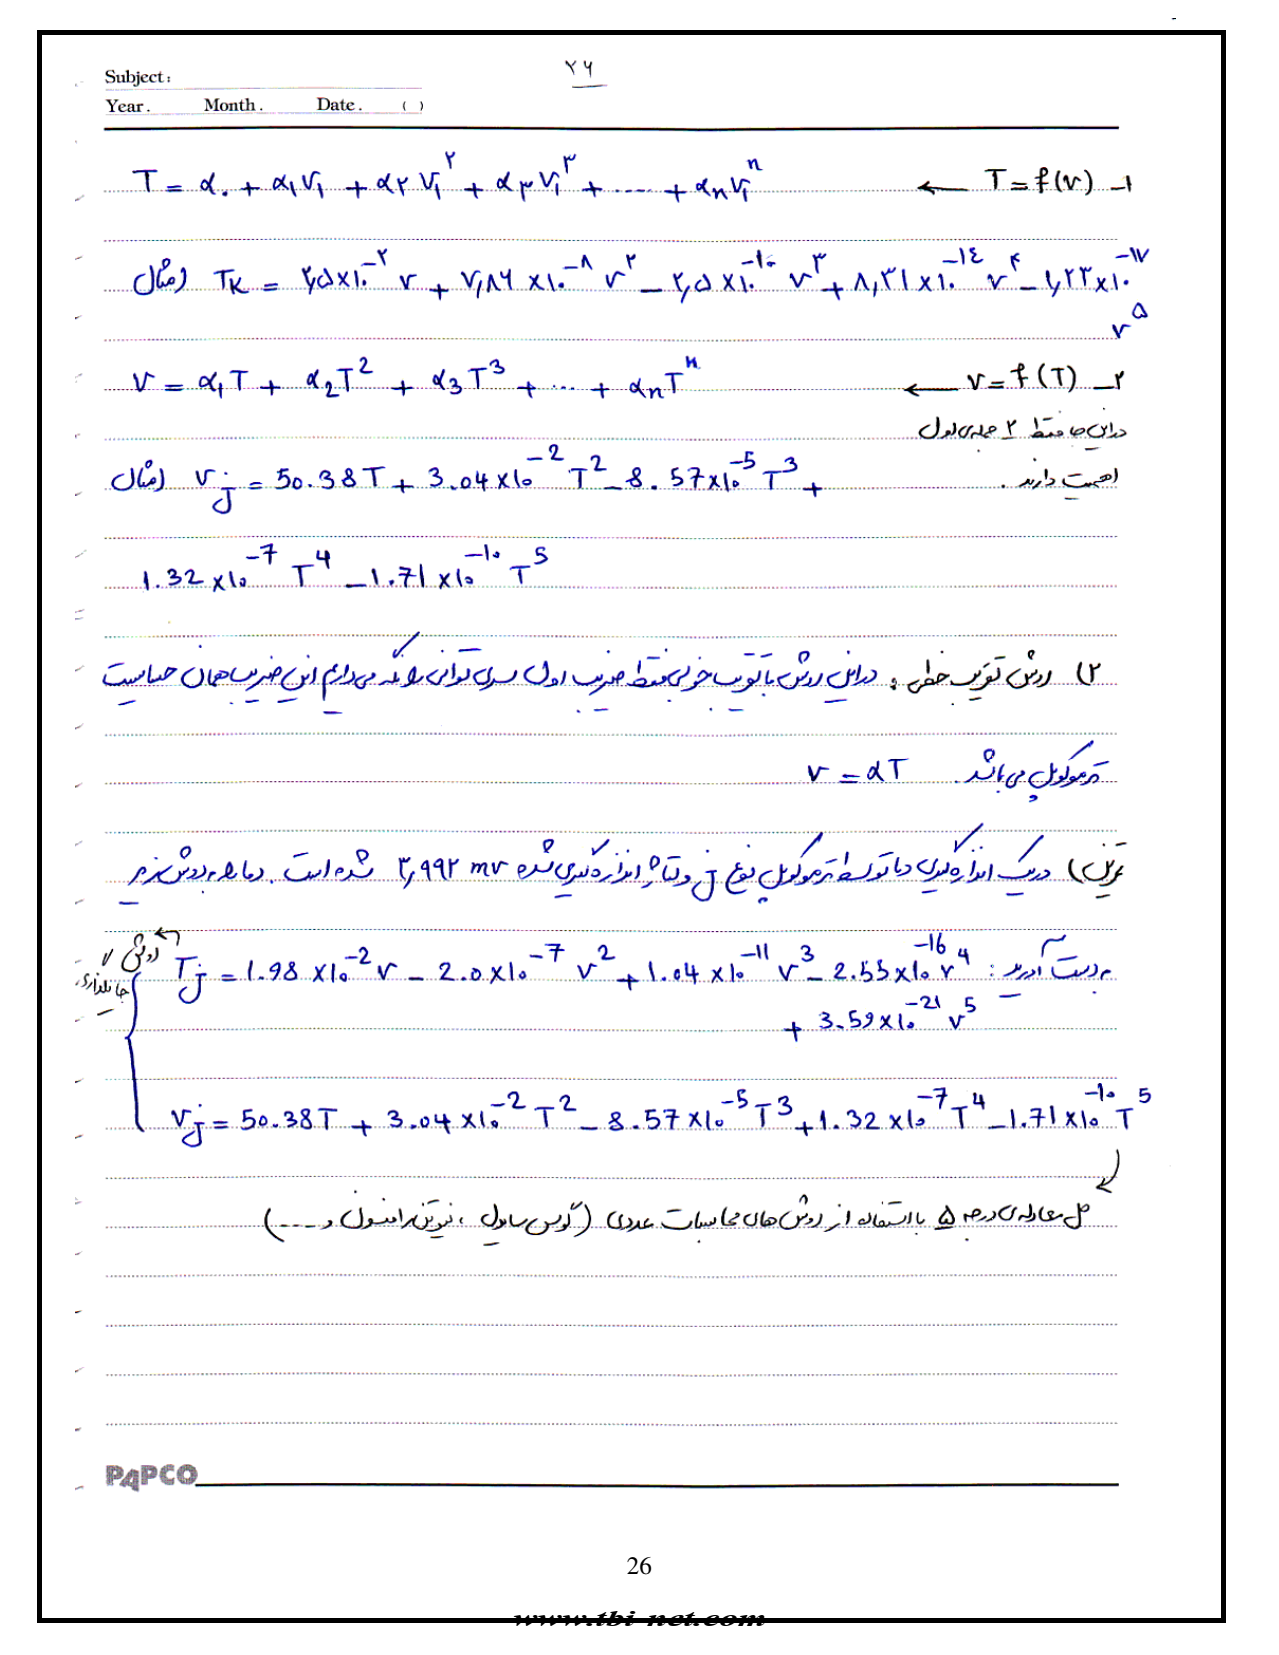 ۲۶
Subject:
Year. Month. Date. ( )
۱- T = f(v) ← T = α۰ + α۱v۱ + α۲ v۱^۲ + α۳ v۱^۳ + .... + αn v۱^n
مثال) TK = ۲٫۵×۱۰^-۲ v + ۷٫۸۶ ×۱۰^-۸ v^۲ – ۲٫۵ ×۱۰^-۱۰ v^۳ + ۸٫۳۱ ×۱۰^-۱٤ v^۴ – ۱٫۲۳×۱۰^-۱۷
v^۵
۲- v = f(T) ← v = α1T + α2T^2 + α3T^3 + ... + αnT^n
در این جا فقط ۲ جمله‌ی اول
اهمیت دارند.
مثال) vj = 50.38T + 3.04×10^-2 T^2 – 8.57×10^-5 T^3 +
1.32×10^-7 T^4 – 1.71×10^-10 T^5
۲) روش تقریب خطی: در این روش با تقریب خوبی فقط ضریب اول سری توانی را نگه می‌داریم این ضریب همان حساسیت
ترموکوپل می باشد. v = αT
تمرین) در یک اندازه‌گیری دما توسط ترموکوپل نوع j ولتاژ اندازه‌گیری شده ۳٫۹۹۲ mv شده است. دما را به روش نرم
به دست آورید: Tj = 1.98 ×10^-2 v – 2.0×10^-7 v^2 + 1.04 ×10^-11 v^3 – 2.55×10^-16 v^4
+ 3.59×10^-21 v^5
روش ۱
جایگذاری
vj = 50.38T + 3.04×10^-2 T^2 – 8.57×10^-5 T^3 + 1.32×10^-7 T^4 – 1.71×10^-10 T^5
حل معادله‌ی درجه ۵ با استفاده از روش های محاسبات عددی (گوس سایدل، نیوتن رافسون و ....)
PAPCO
26
www.tbi-net.com